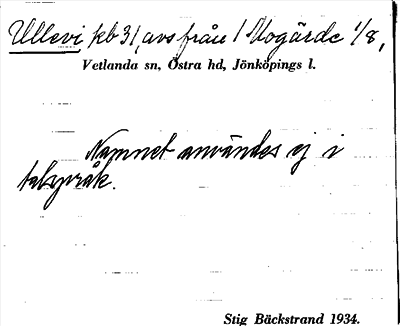 Ullevi, kb 31, avs från 1 Mogärde 1/8,
Vetlanda sn, Östra hd, Jönköpings l.
Namnet användes ej i
talspråk.
Stig Bäckstrand 1934.